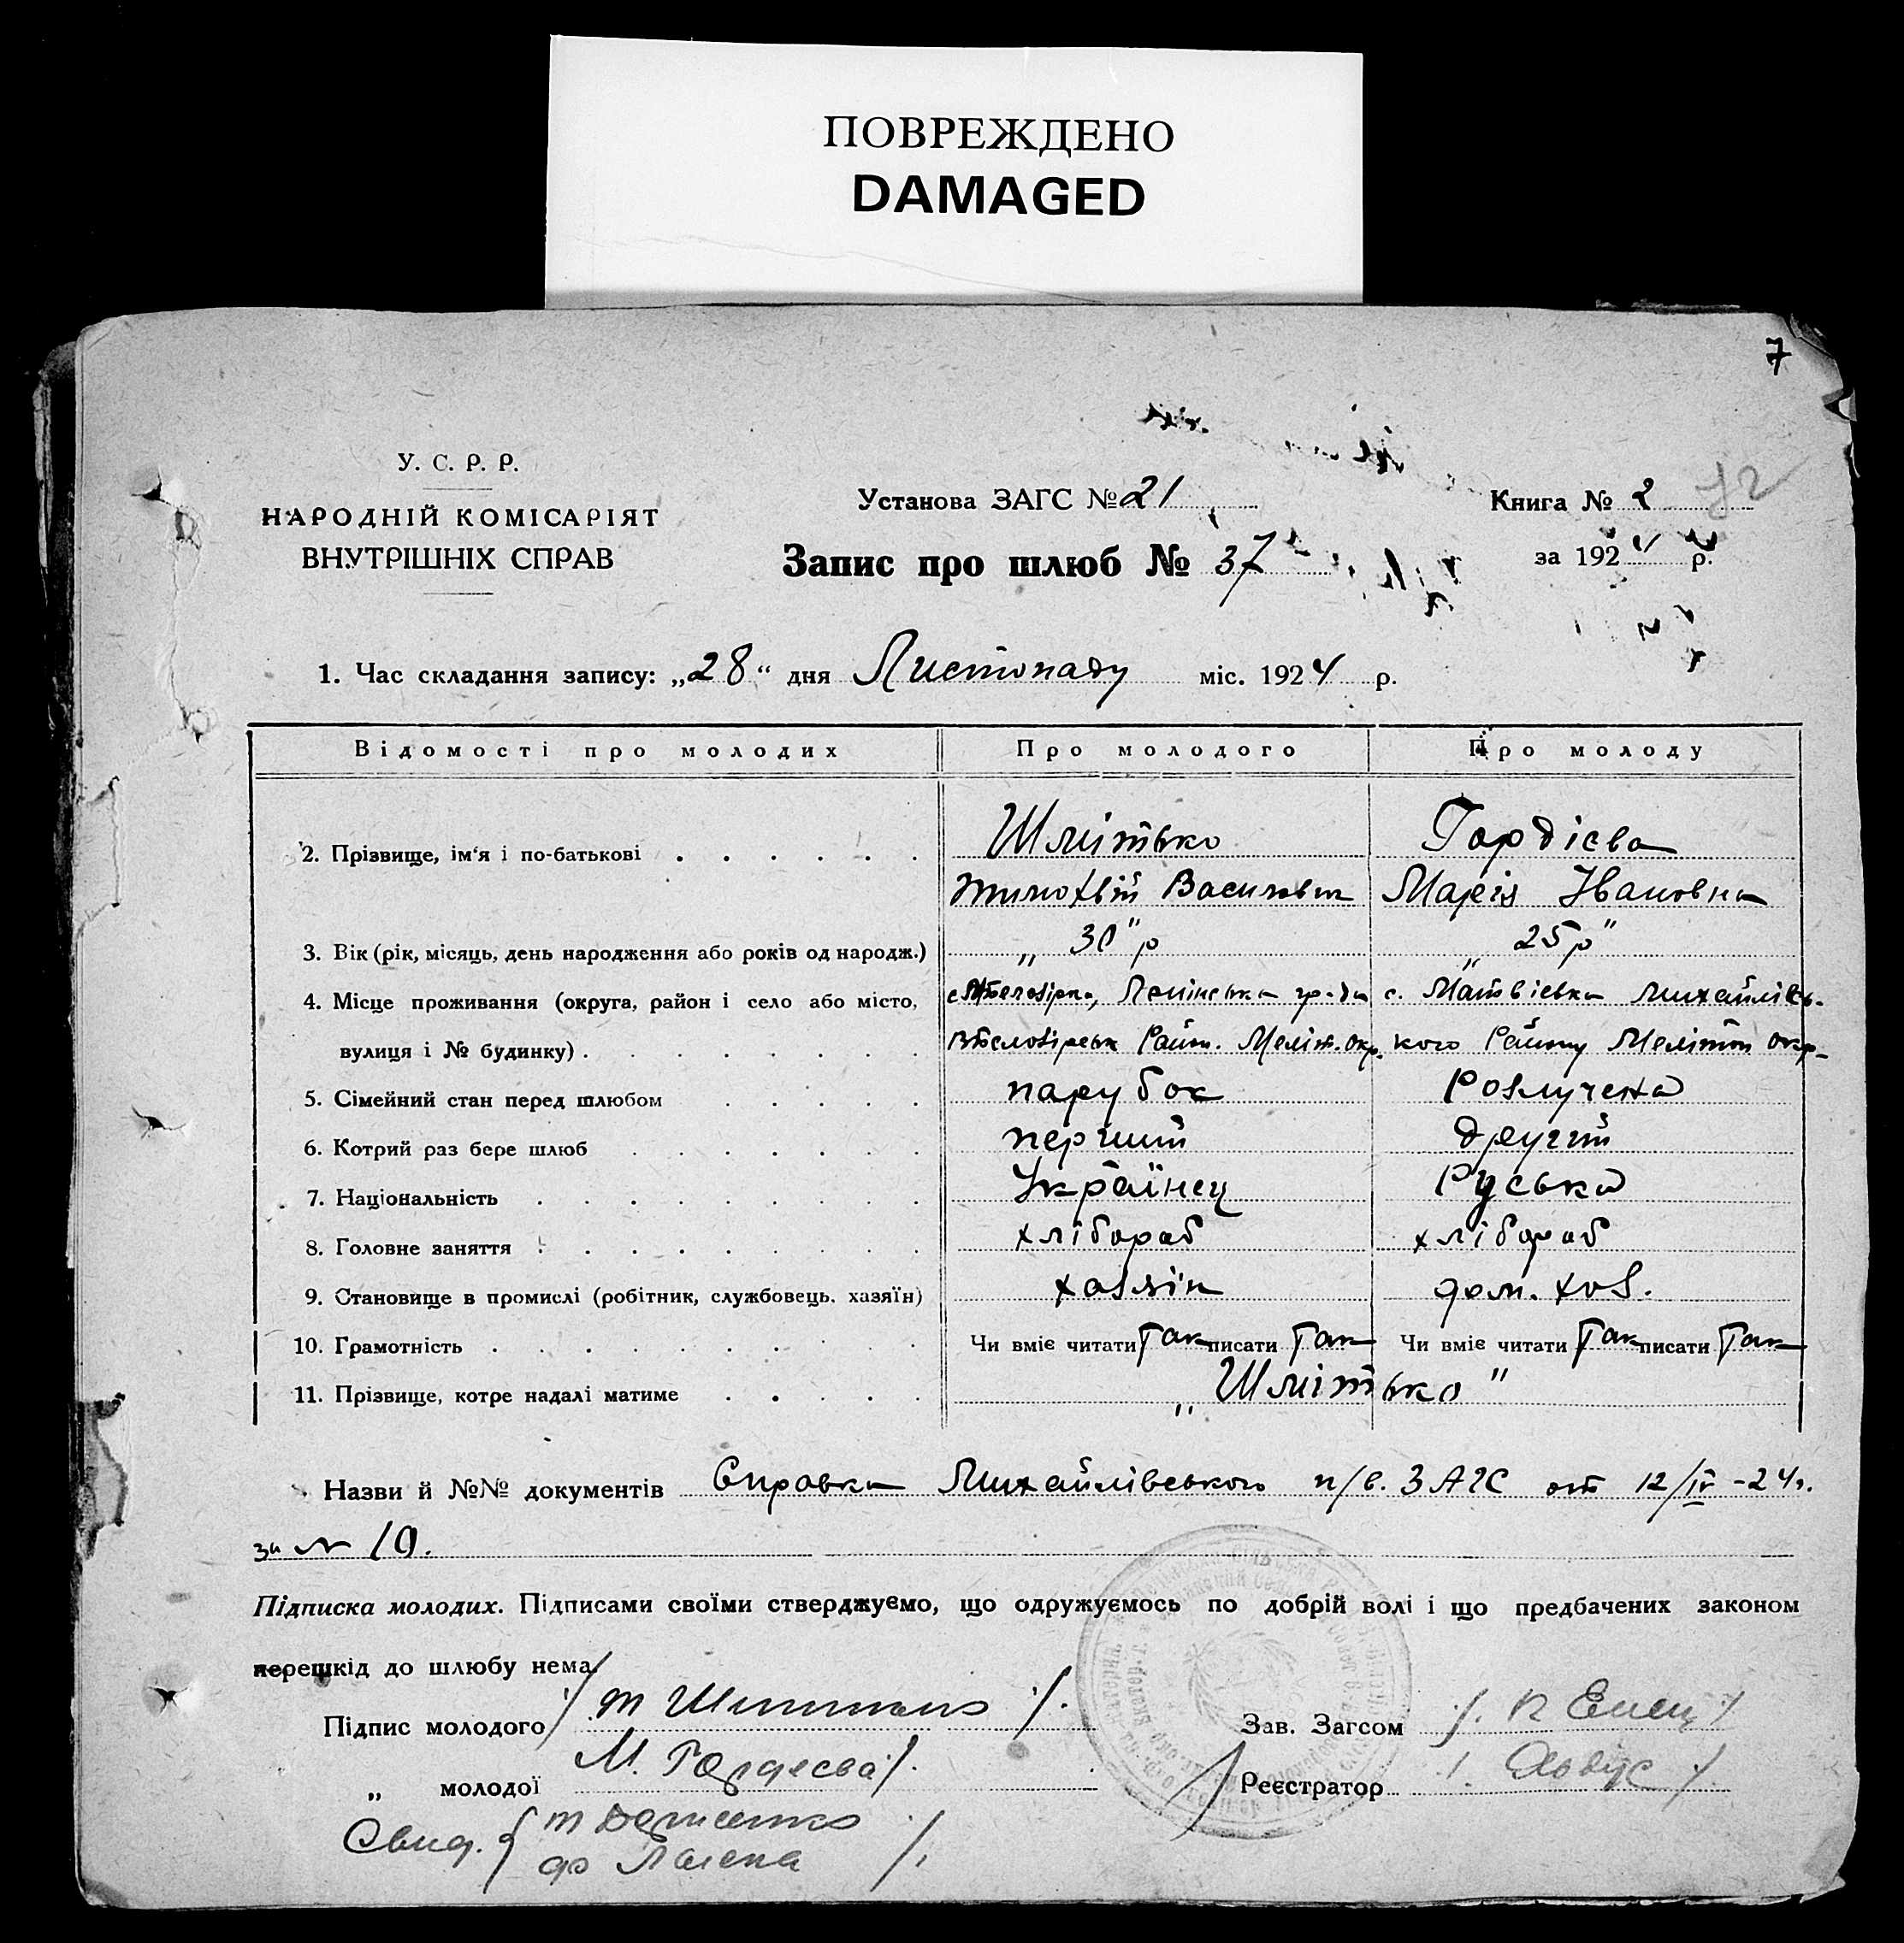 ПОВРЕЖДЕНО
DAMAGED
7
У. С. Р. Р.
НАРОДНІЙ КОМІСАРІЯТ
ВНУТРІШНІХ СПРАВ
Установа ЗАГС № 21
Запис про шлюб № 37
Книга № 2
за 1924 р.
1. Час складання запису: „28“ дня Листопаду міс. 1924 р.
Відомості про молодих Про молодого Про молоду
2. Прізвище, ім'я і по-батькові . . . . . . Шмітько Гордієва
Тимохвій Васильвич Марія Івановна
3. Вік (рік, місяць, день народження або років од народж.) „30" р „25 р"
4. Місце проживання (округа, район і село або місто, Ленінська с. Матвієвки Михайлівсь-
вулиця і № будинку) . . . . . . . . Райн. Меліт. Окр. кого Району Меліт Окр-
5. Сімейний стан перед шлюбом . . . . . парубок Розлучена
6. Котрий раз бере шлюб . . . . . . . перший другий
7. Національність . . . . . . . . . Українец Руська
8. Головне заняття . . . . . . . . . хлібороб хлібороб
9. Становище в промислі (робітник, службовець, хазяїн) хазяін дом. хоз.
10. Грамотність . . . . . . . . . . Чи вміє читати Так писати Так Чи вміє читати Так писати Так
11. Прізвище, котре надалі матиме . . . . . „Шмітько"
Назви й №№ документів Справка Михайлівського п/в. ЗАГС от 12/IV-24 г.
за № 10.
Підписка молодих. Підписами своїми стверджуємо, що одружуємось по добрій волі і що предбачених законом
перешкід до шлюбу нема.
Підпис молодого Зав. Загсом
„ молодої М. Гордеева Реєстратор
Свид. Т Денисенко